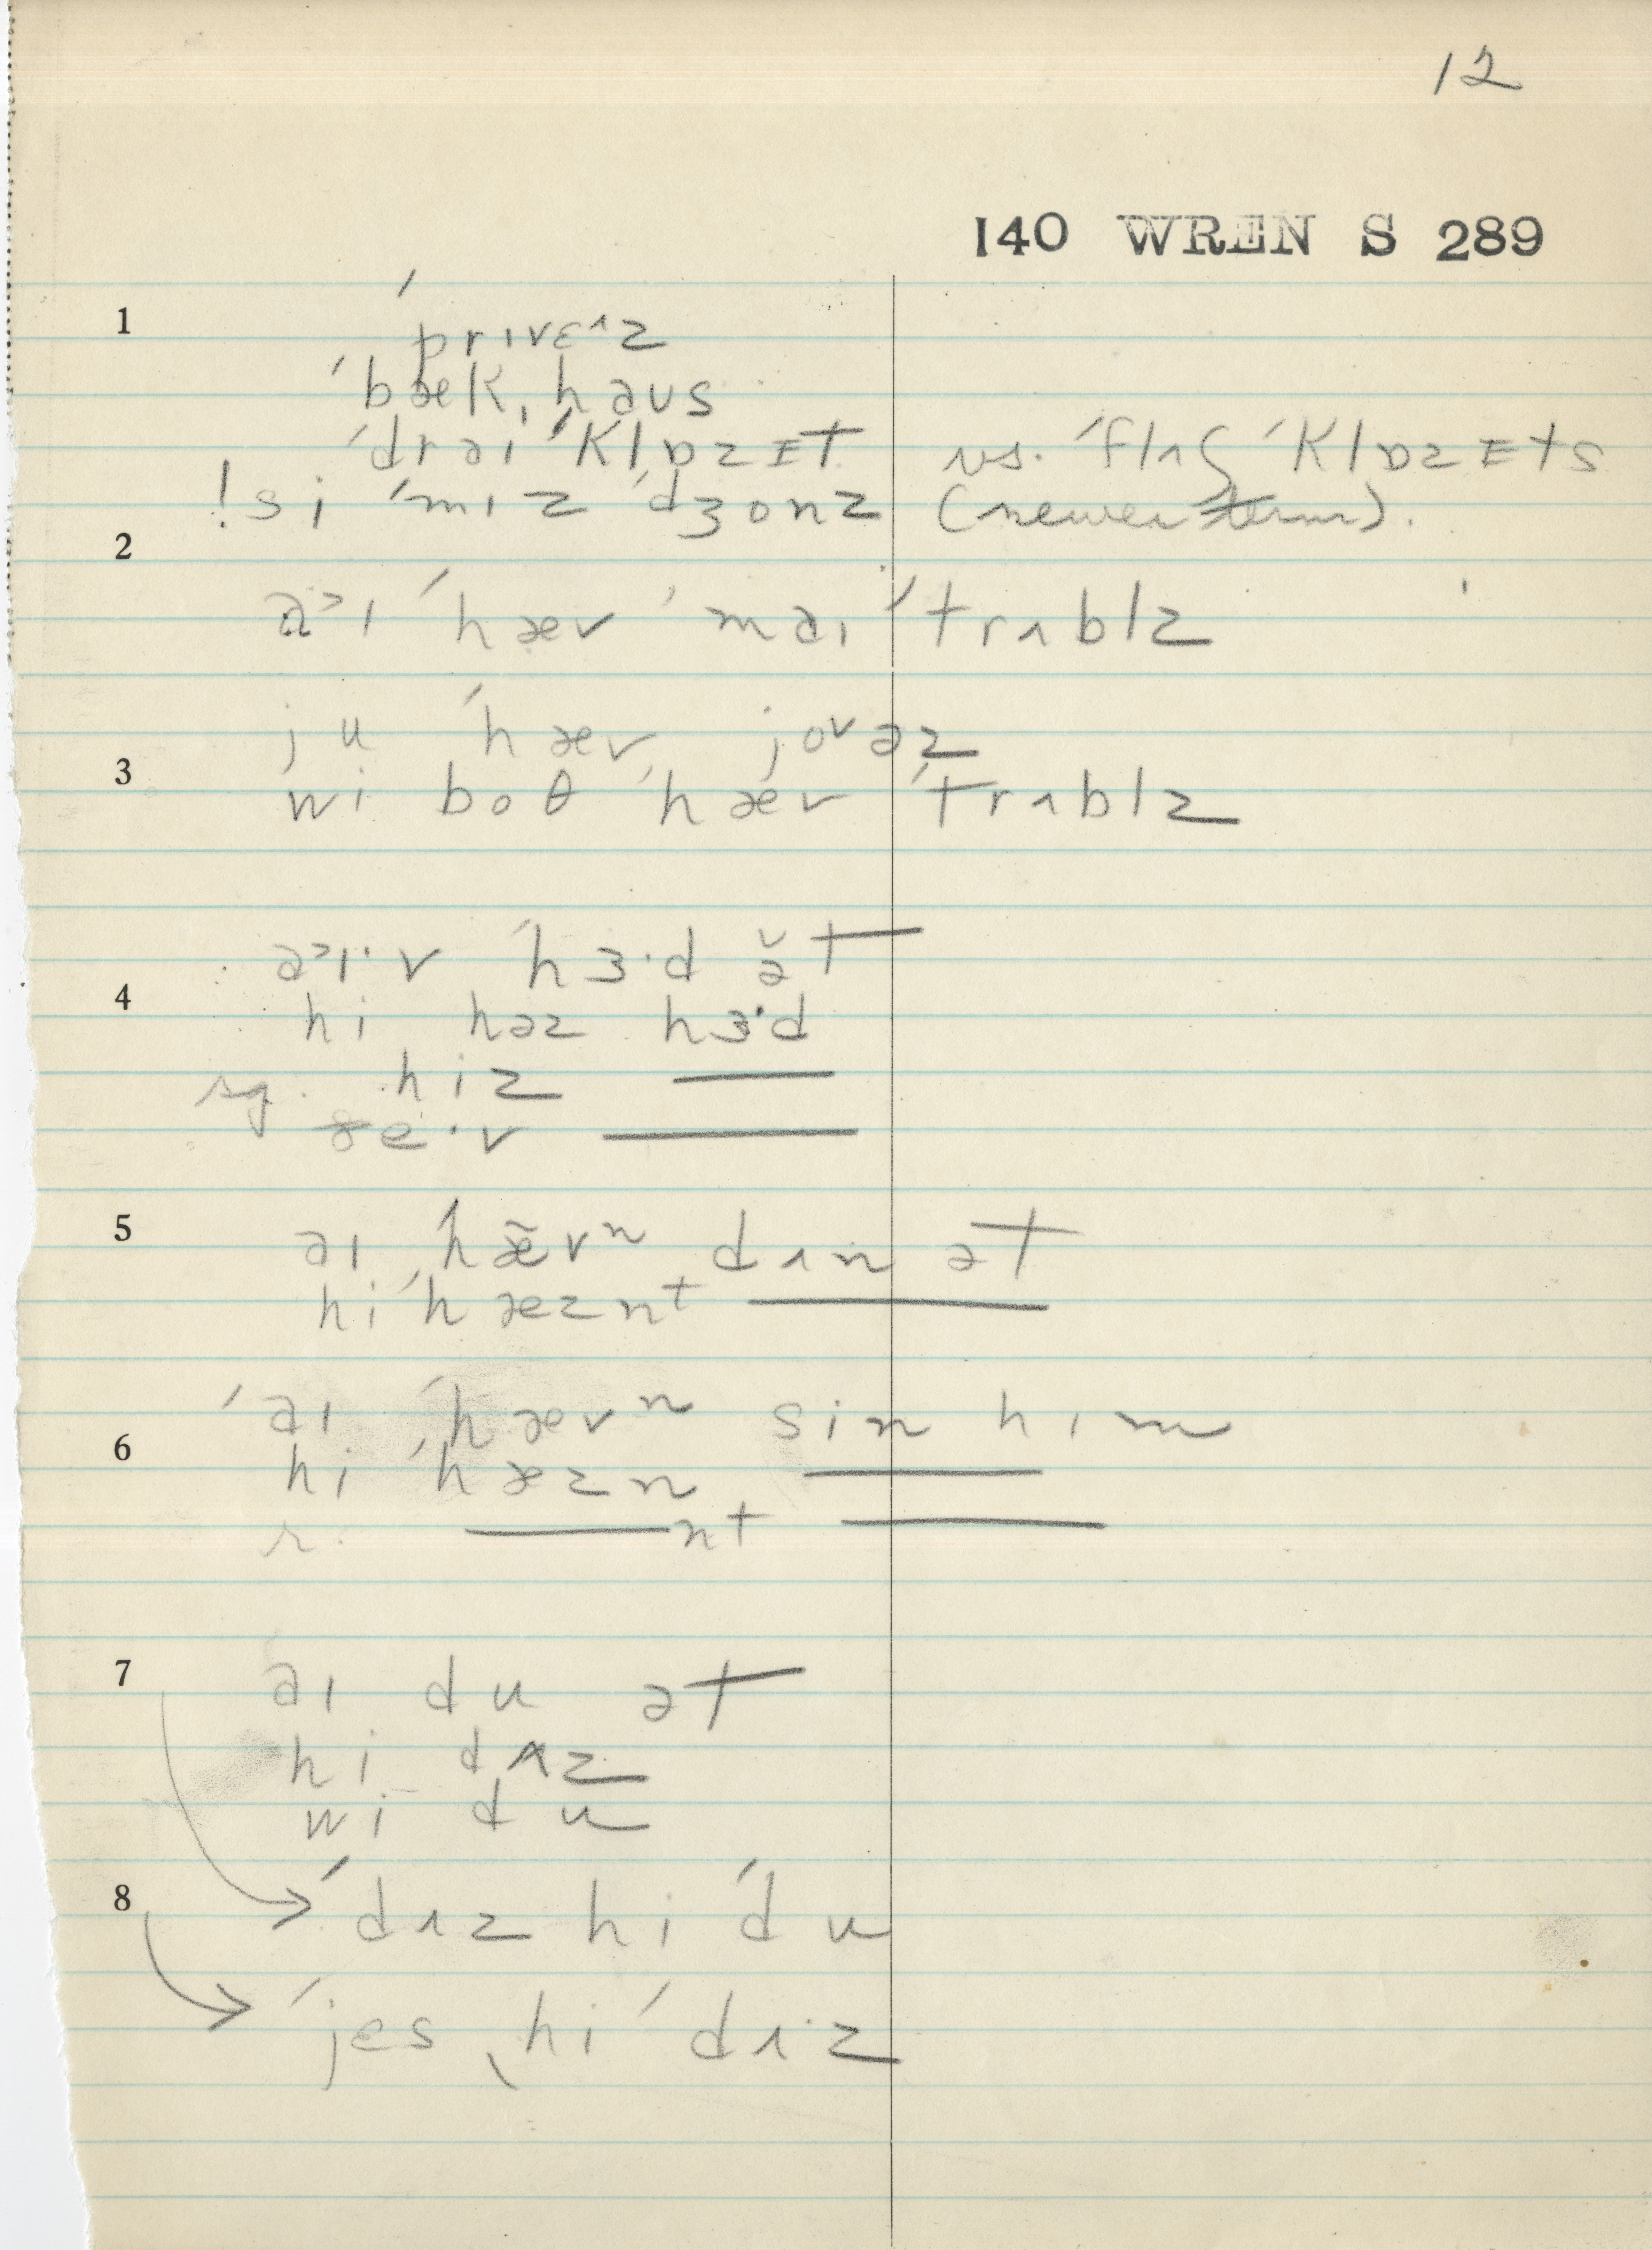 12
140 WREN S 289
1 ˈprɪvɛᶺz
ˈbækˌhaʊs
ˈdrəiˈklɒzɪt vs. ˈflʌʃ ˈklɒzɪts
!si ˈmɪz ˈdʒonz (newer term).
2
ə˃ɪ ˈhæv ˈməɪ ˈtrʌblz
ju ˈhæv joᵛəz
3 wi boθ ˈhæv ˈtrʌblz
ə˃ɪ·v ˈhɜ·d ə̆t
4 hi həz hɜ·d
sg. hiz ——
ðe·v ——
5 əɪ ˈhæ̃vⁿ dʌn ət
hi ˈhæznᵗ ——
ˈəɪ ˈhævⁿ sin hɪm
6 hi ˈhæzn ——
r. ——nt ——
7 əɪ du ət
hi dʌz
wi du
8 → ˈdʌz hi ˈdu
→ ˈjes, hi ˈdʌ·z